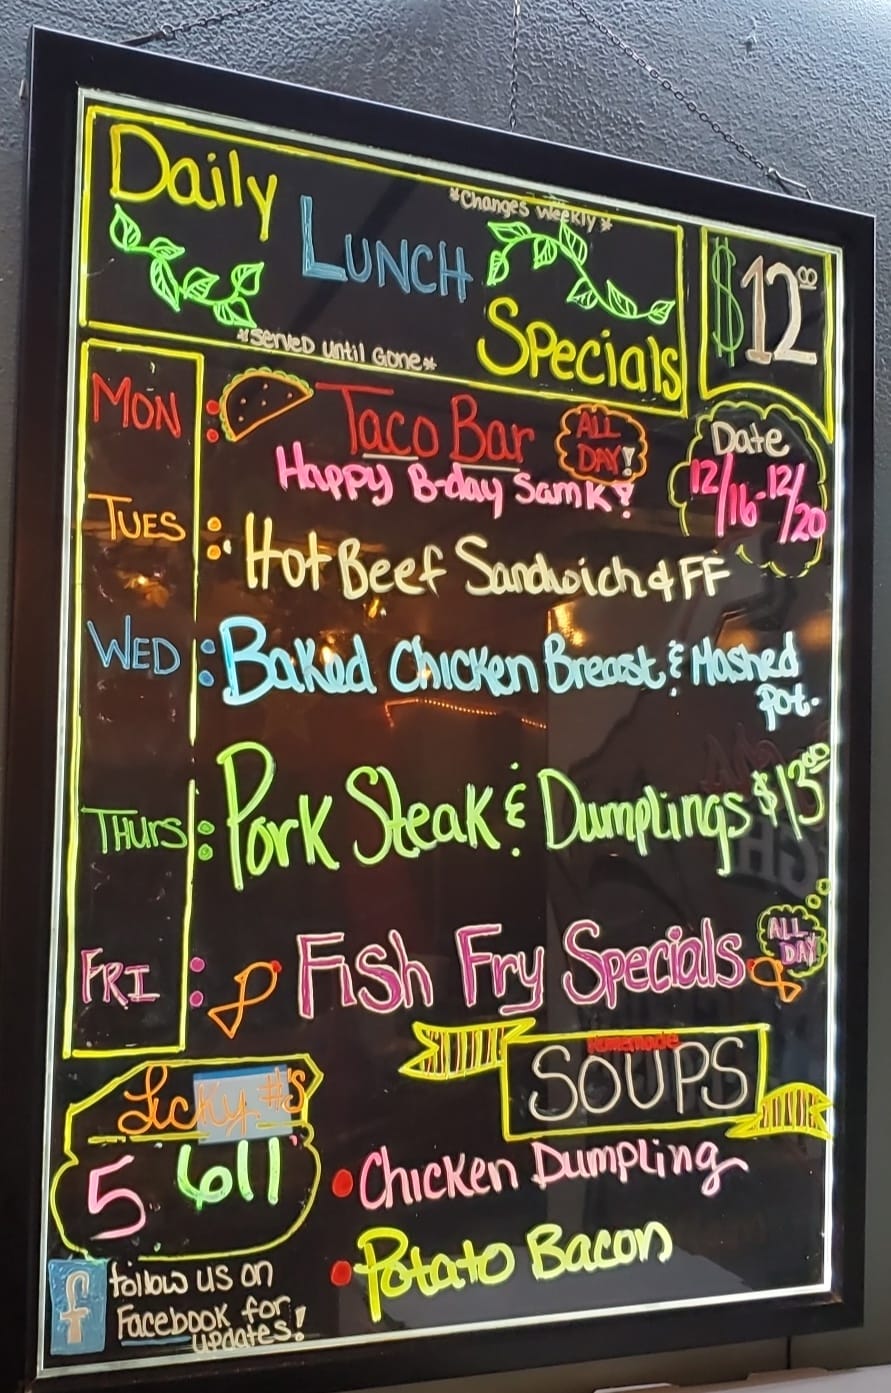 Daily
*Changes weekly*
LUNCH
Specials
*Served Until Gone*
$12.00
MON : Taco Bar ALL DAY!
Happy B-day Sam K!
Date
12/16-12/20
TUES : Hot Beef Sandwich & FF
WED : Baked Chicken Breast & Mashed
Pot.
THURS : Pork Steak & Dumplings $13.00
FRI : Fish Fry Specials ALL DAY!
Homemade
SOUPS
Lucky #'s
5 611
• Chicken Dumpling
• Potato Bacon
f follow us on
Facebook for
updates!